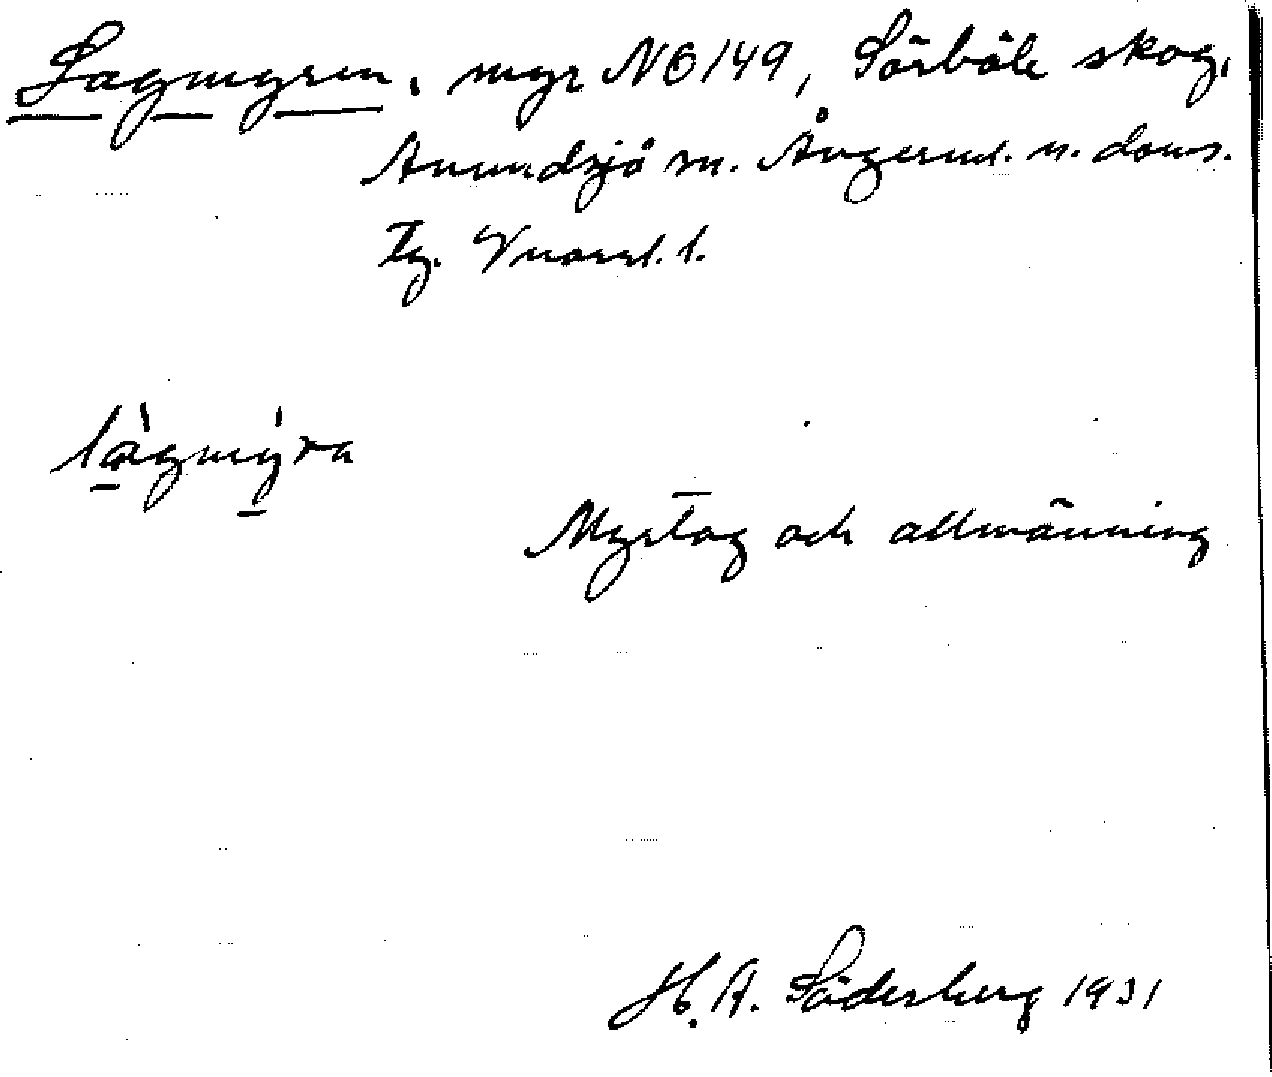 Lagmyren, myr NÖ 149, Sörböle skog,
Anundsjö sn. Ångerml. n. doms.
Tg. Vnorrl. l.
làgmýra
Myrtag och allmänning
H. A. Söderberg 1931